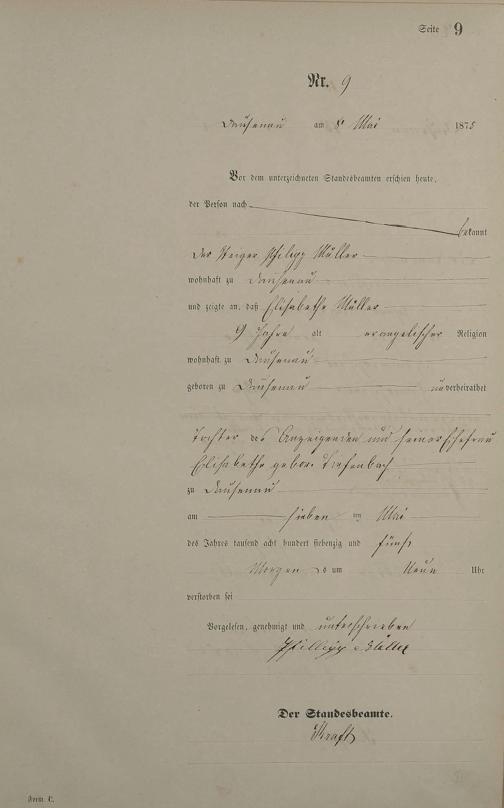 Seite 9
Nr. 9
Dausenau am 8 Mai 1875
Vor dem unterzeichneten Standesbeamten erschien heute,
der Person nach
bekannt
der Steiger Philipp Müller
wohnhaft zu Dausenau
und zeigte an, daß Elisabethe Müller
9 Jahre alt evangelischer Religion
wohnhaft zu Dausenau
geboren zu Dausenau unverheirathet
Tochter des Anzeigenden und seiner Ehefrau
Elisabethe geborne
zu Dausenau
am sieben ten Mai
des Jahres tausend acht hundert siebenzig und fünf
Morgens um Neun Uhr
verstorben sei
Vorgelesen, genehmigt und unterschrieben
Philipp Müller
Der Standesbeamte.
Kraft
Form. C.